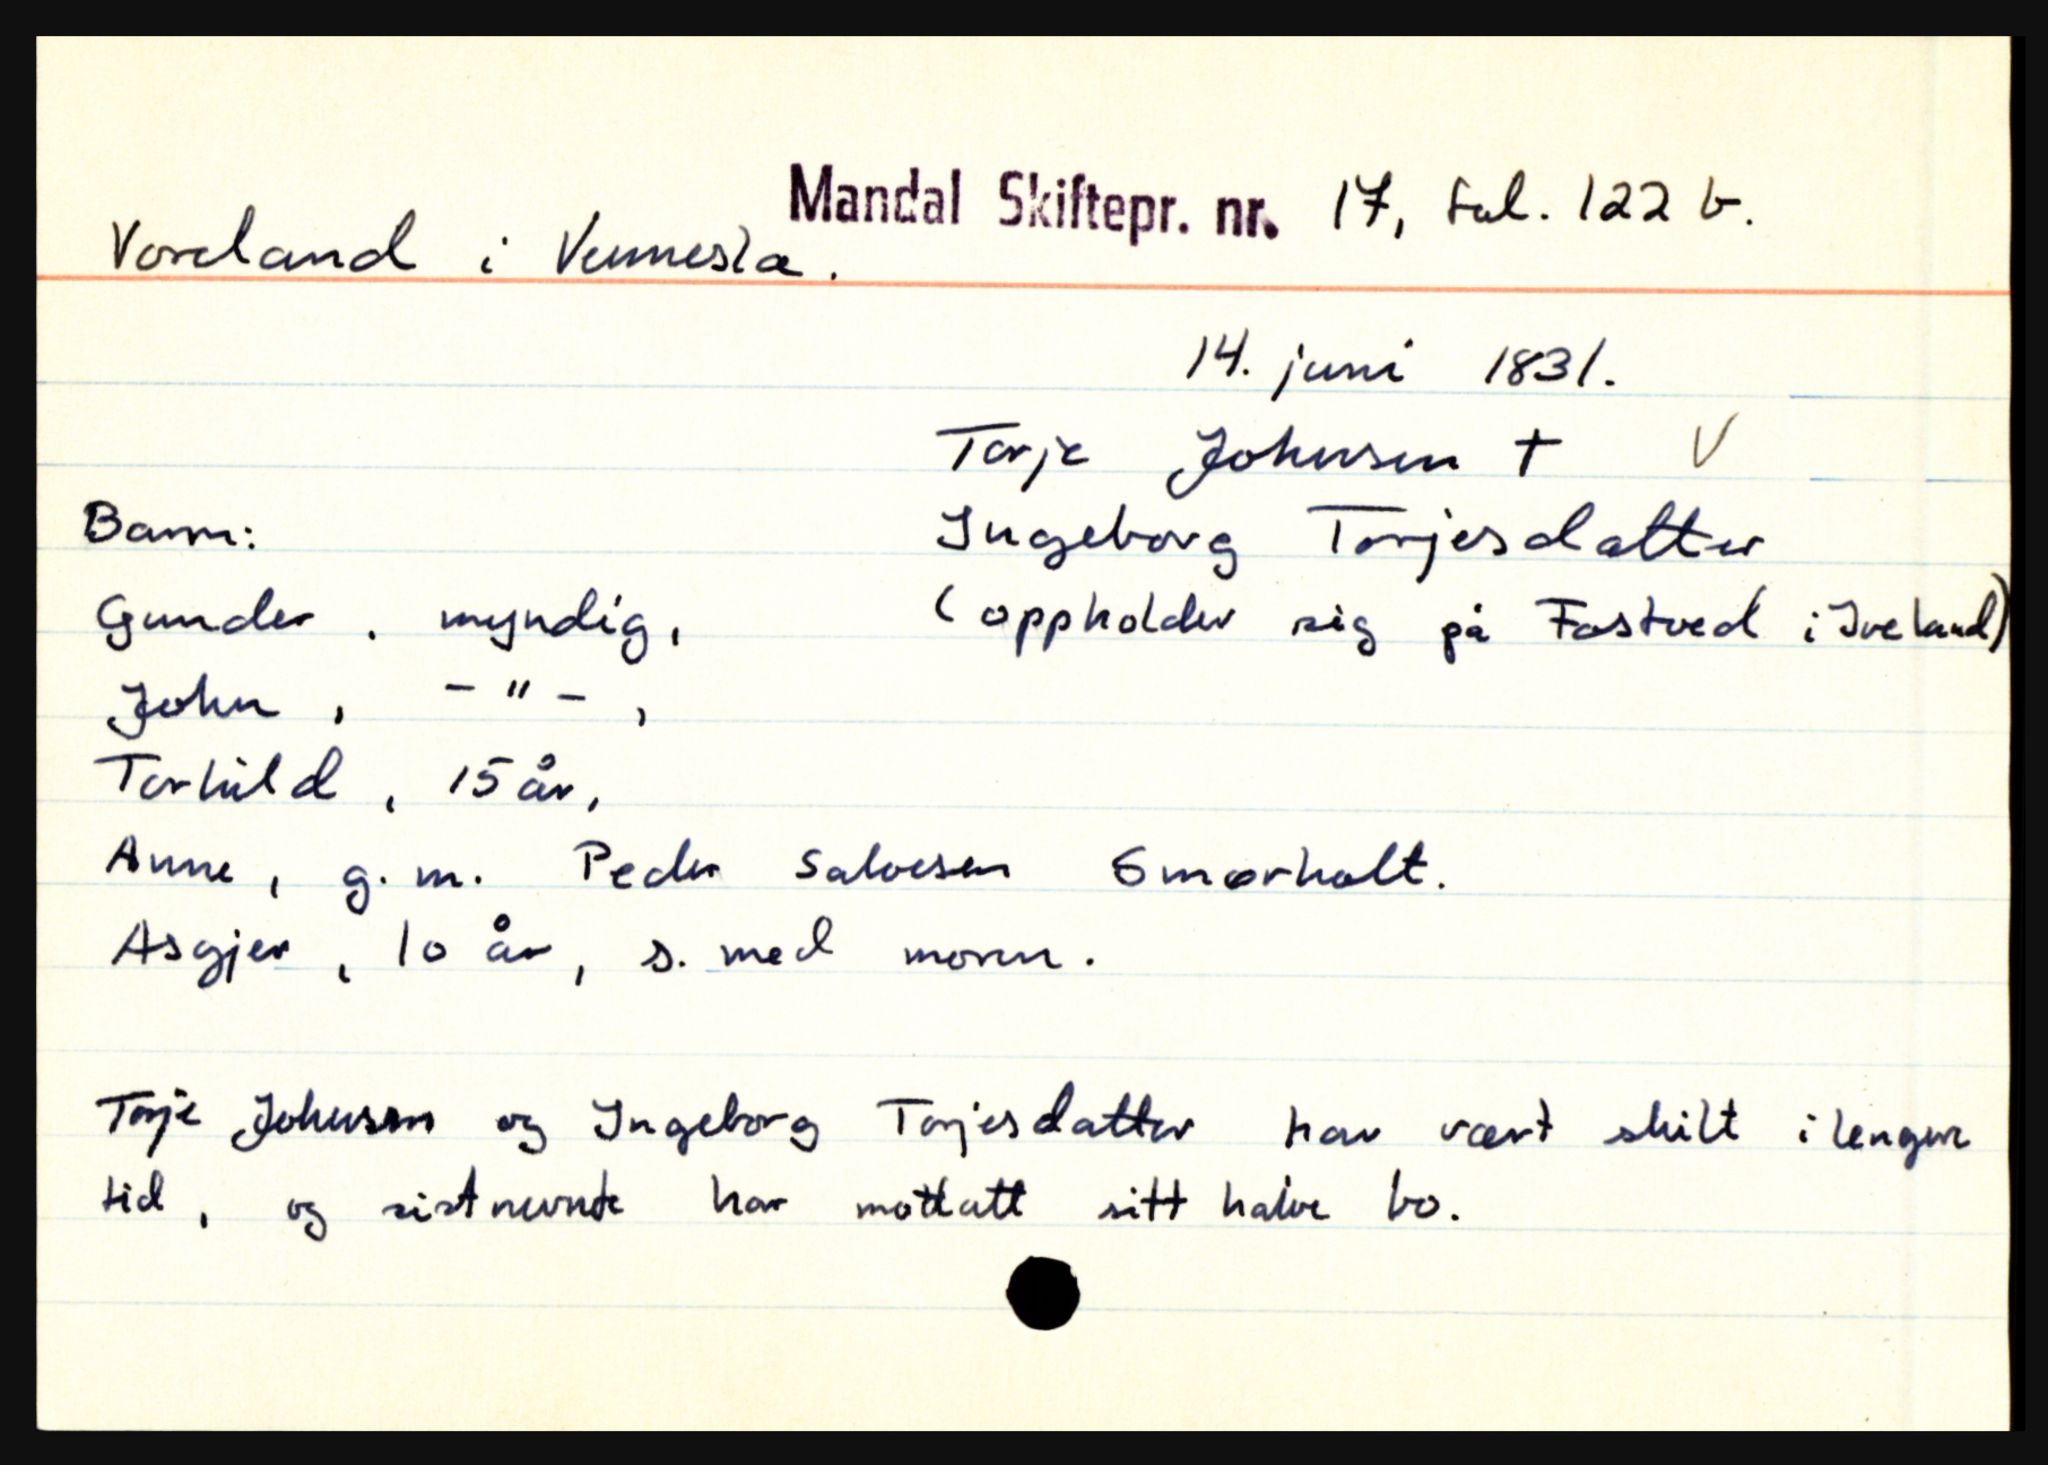 Mandal Skiftepr. nr. 17, fol. 122 b.
Voreland i Vennesla.
14. juni 1831.
Torje Johnsen † V
Ingeborg Torjesdatter
(oppholder sig på Fostved i Iveland)
Barn:
Gunder, myndig,
John, - " - ,
Torhild, 15 år,
Anne, g. m. Peder Salvesen Smørholt.
Asgjer, 10 år, s. med moren.
Torje Johnsen og Ingeborg Torjesdatter har vært skilt i lengere
tid, og sistnevnte har mottatt sitt halve bo.